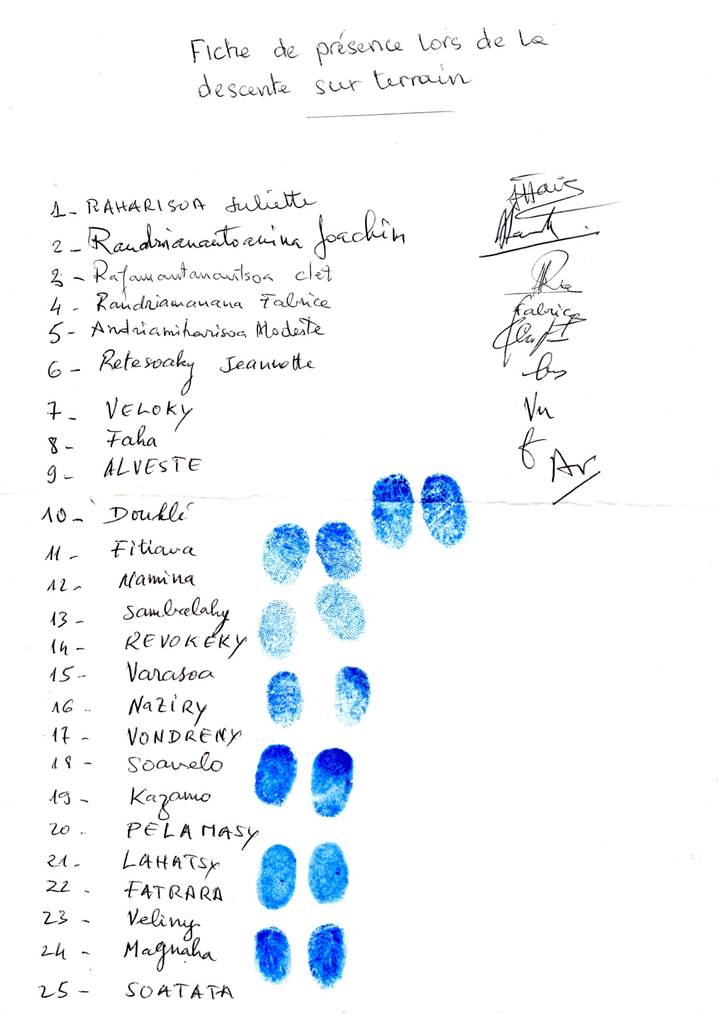 Fiche de présence lors de la
descente sur terrain
1 - RAHARISOA Juliette
2 - Randrianantoanina Joachin
3 - Rafamantanantsoa clet
4 - Randriamanana Fabrice Fabrice
5 - Andriamiharisoa Modeste
6 - Retesoaky Jeannette
7 - VELOKY Vu
8 - Faha f
9 - ALVESTE Av
10 - Doublé
11 - Fitiava
12 - Namina
13 - Sambelahy
14 - REVOKEKY
15 - Varasoa
16 - NAZIRY
17 - VONDRENY
18 - Soavelo
19 - Kazamo
20 - PELAMASY
21 - LAHATSY
22 - FATRARA
23 - Veliny
24 - Magnaha
25 - SOATATA